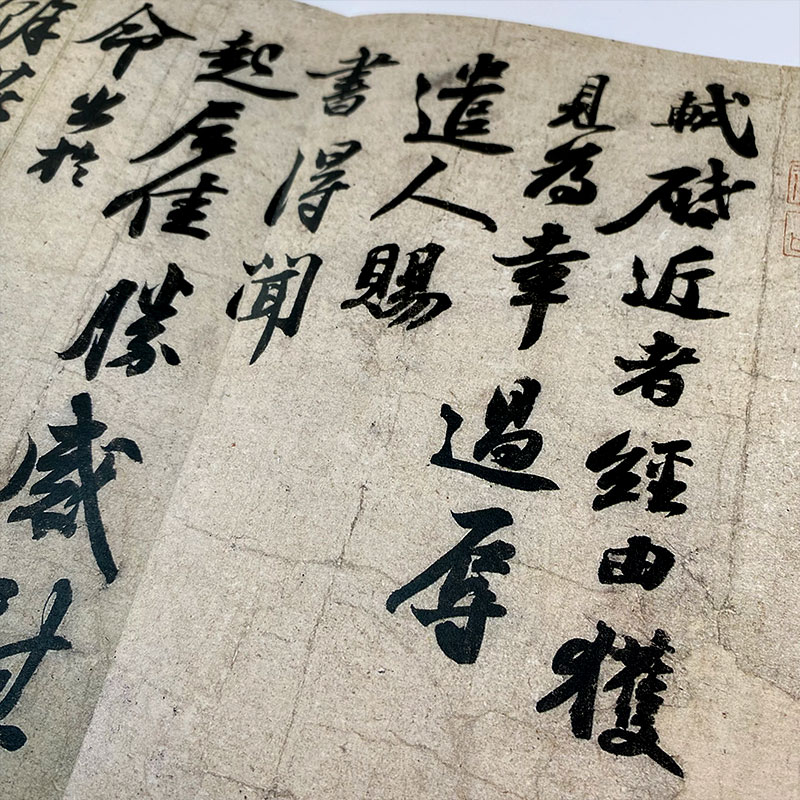 軾啓近者經由獲
見為幸過辱
遣人賜
書得聞
起居佳勝感
命出於